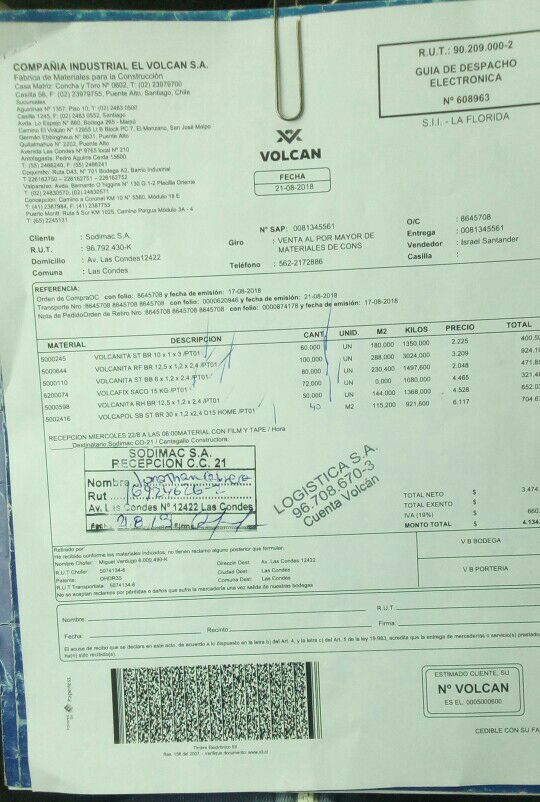 COMPAÑIA INDUSTRIAL EL VOLCAN S.A.
Fábrica de Materiales para la Construcción
Casa Matriz: Concha y Toro Nº 0602, T: (02) 23979700
Casilla 56, F: (02) 23979755, Puente Alto, Santiago, Chile
Sucursales
Agustinas Nº 1357, Piso 10, T: (02) 2483 0500
Casilla 1245, F: (02) 2483 0552, Santiago
Avda. Lo Espejo Nº 860, Bodega 265 - Maipú
Camino El Volcán Nº 12955 Lt B Block PC 7, El Manzano, San José Maipo
Germán Ebbinghaus Nº 0631, Puente Alto
Quitalmahue Nº 2202, Puente Alto
Avenida Las Condes Nº 9765 local Nº 210
Antofagasta: Pedro Aguirre Cerda 13600
T: (55) 2486240, F: (55) 2486241
Coquimbo: Ruta D43, Nº 701 Bodega A2, Barrio Industrial
T 226162750 – 226162751 – 226162752
Valparaíso: Avda. Bernardo O´higgins N° 130 G.1-2 Placilla Oriente
T: (02) 24830570, (02) 24830571
Concepción: Camino a Coronel KM 10 N° 5580, Módulo 18 E
T: (41) 2387984, F: (41) 2387753
Puerto Montt: Ruta 5 Sur KM 1025, Camino Pargua Módulo 3A - 4
T: (65) 2245131
R.U.T.: 90.209.000-2
GUIA DE DESPACHO
ELECTRONICA
Nº 608963
S.I.I. - LA FLORIDA
VOLCAN
FECHA
21-08-2018
Cliente : Sodimac S.A.
R.U.T. : 96.792.430-K
Domicilio : Av. Las Condes12422
Comuna : Las Condes
N° SAP: 0081345561
Giro : VENTA AL POR MAYOR DE
MATERIALES DE CONS
Teléfono : 562-2172886
O/C : 8645708
Entrega : 0081345561
Vendedor : Israel Santander
Casilla :
REFERENCIA:
Orden de CompraOC con folio: 8645708 y fecha de emisión: 17-08-2018
Transporte Nro :8645708 8645708 8645708 8645708 con folio: 0000620946 y fecha de emisión: 21-08-2018
Nota de PedidoOrden de Retiro Nro :8645708 8645708 8645708 con folio: 0000874178 y fecha de emisión: 17-08-2018
MATERIAL DESCRIPCION CANT. UNID. M2 KILOS PRECIO TOTAL
5000245 VOLCANITA ST BR 10 x 1 x 3 /PT01 60,000 UN 180,000 1350,000 2.225 400.50
5000644 VOLCANITA RF BR 12,5 x 1,2 x 2,4 /PT01 100,000 UN 288,000 3024,000 3.209 924.19
5000110 VOLCANITA ST BB 8 x 1,2 x 2,4 /PT01 80,000 UN 230,400 1497,600 2.048 471.85
6200074 VOLCAFIX SACO 15 KG /PT01 72,000 UN 0,000 1080,000 4.465 321.48
5000598 VOLCANITA RH BR 12,5 x 1,2 x 2,4 /PT01 50,000 UN 144,000 1368,000 4.528 652.03
5002416 VOLCAPOL SB ST BR 30 x 1,2 x2,4 D15 HOME /PT01 40 M2 115,200 921,600 6.117 704.67
RECEPCION MIERCOLES 22/8 A LAS 06:00MATERIAL CON FILM Y TAPE / Hora
Destinatario:Sodimac CO-21 / Cantagallo Constructora:
SODIMAC S.A.
RECEPCION C.C. 21
Nombre Jonathan Cabrera
Rut
Av. Las Condes Nº 12422 Las Condes
Fecha Firma
LOGISTICA S.A.
96.708.670-3
Cuenta Volcán
TOTAL NETO $ 3.474.
TOTAL EXENTO $
IVA (19%) $ 660.
MONTO TOTAL $ 4.134.
Retirado por:
He recibido conforme los materiales indicados, no tienen reclamo alguno posterior que formular.
Nombre Chofer: Miguel Verdugo 6.000.490-K
R.U.T Chofer: 5074134-6
Patente: DHDR35
R.U.T Transportista: 5074134-6
Dirección Dest: Av. Las Condes 12422
Ciudad Dest: Las Condes
Comuna Dest: Las Condes
No se aceptan reclamos por pérdidas o daños que sufra la mercadería una vez salida de nuestras bodegas
V B BODEGA
V B PORTERIA
Nombre:
R.U.T.
Fecha: Recinto Firma:
El acuse de recibo que se declara en este acto, de acuerdo a lo dispuesto en la letra b) del Art. 4, y la letra c) del Art. 5 de la ley 19.983, acredita que la entrega de mercaderías o servicio(s) prestado
ha(n) sido recibido(s).
Timbre Electrónico SII
Res. 158 del 2007 - Verifique documento: www.sii.cl
ESTIMADO CLIENTE, SU
Nº VOLCAN
ES EL: 0005000600
CEDIBLE CON SU FA